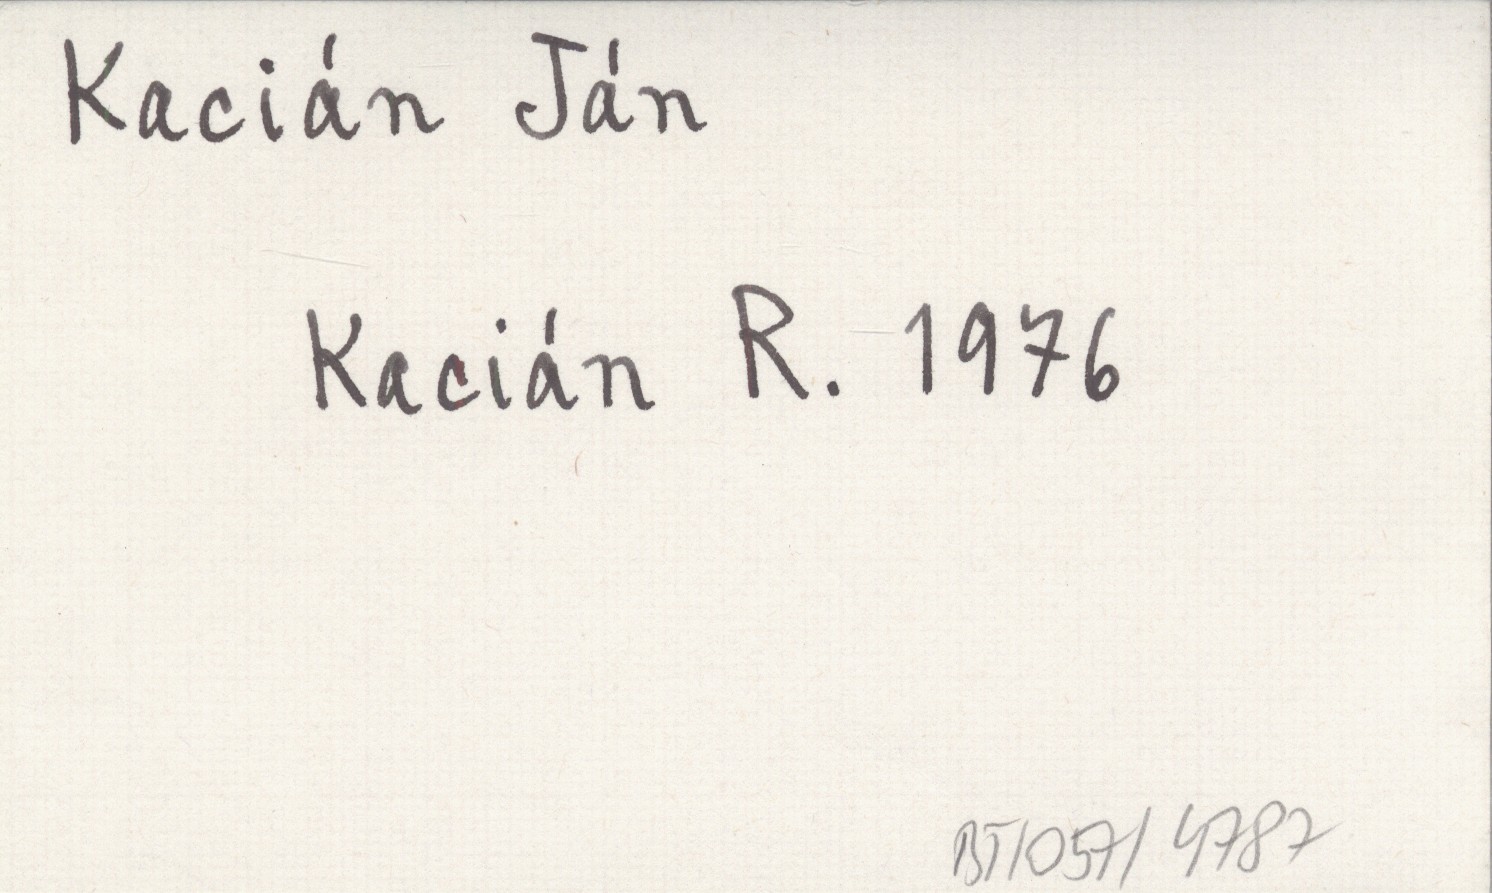 Kacián Ján
Kacián R. 1976
BT/057/4787